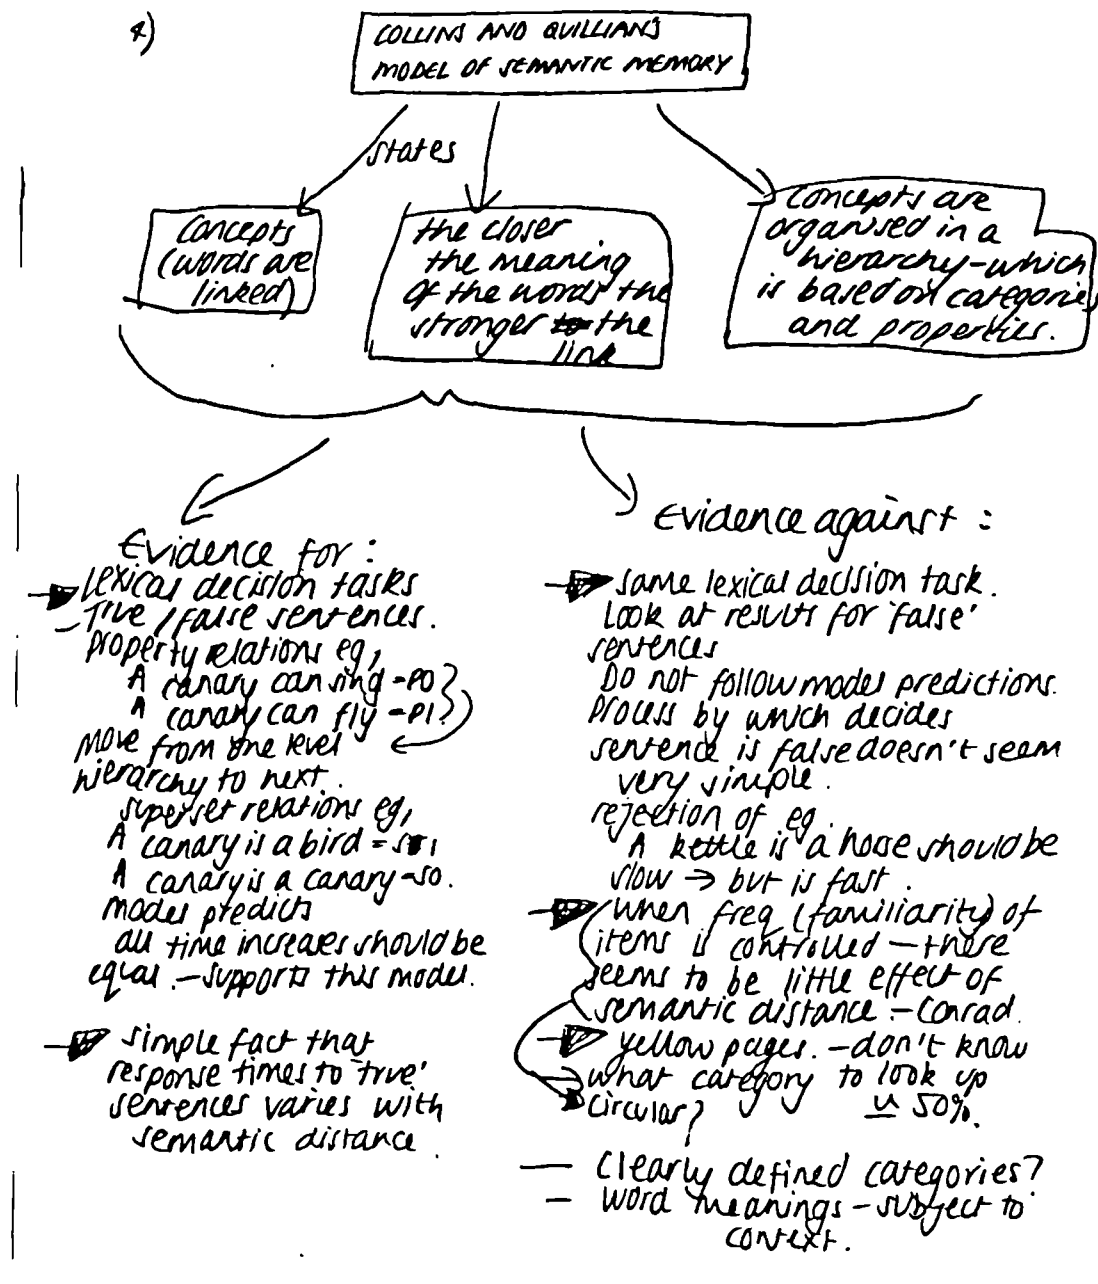 4)
COLLINS AND QUILLIAN'S
MODEL OF SEMANTIC MEMORY
states
Concepts
(words are
linked)
the closer
the meaning
of the words the
stronger the
link
Concepts are
organised in a
hierarchy - which
is based on categories
and properties.
Evidence for:
Lexical decision tasks
- True / false sentences.
property relations eg,
A canary can sing - P0
A canary can fly - P1
Move from one level
hierarchy to next.
superset relations eg,
A canary is a bird = S1
A canary is a canary - S0.
Model predicts
all time increases should be
equal. - supports this model.
simple fact that
response times to 'true'
sentences varies with
semantic distance.
Evidence against:
same lexical decision task.
Look at results for 'false'
sentences
Do not follow model predictions.
Process by which decides
sentence is false doesn't seem
very simple.
rejection of eg.
A kettle is a horse should be
slow → but is fast.
When freq (familiarity) of
items is controlled - there
seems to be little effect of
semantic distance - Conrad.
yellow pages. - don't know
what category to look up
circular? 50%.
- Clearly defined categories?
- word meanings - subject to
context.